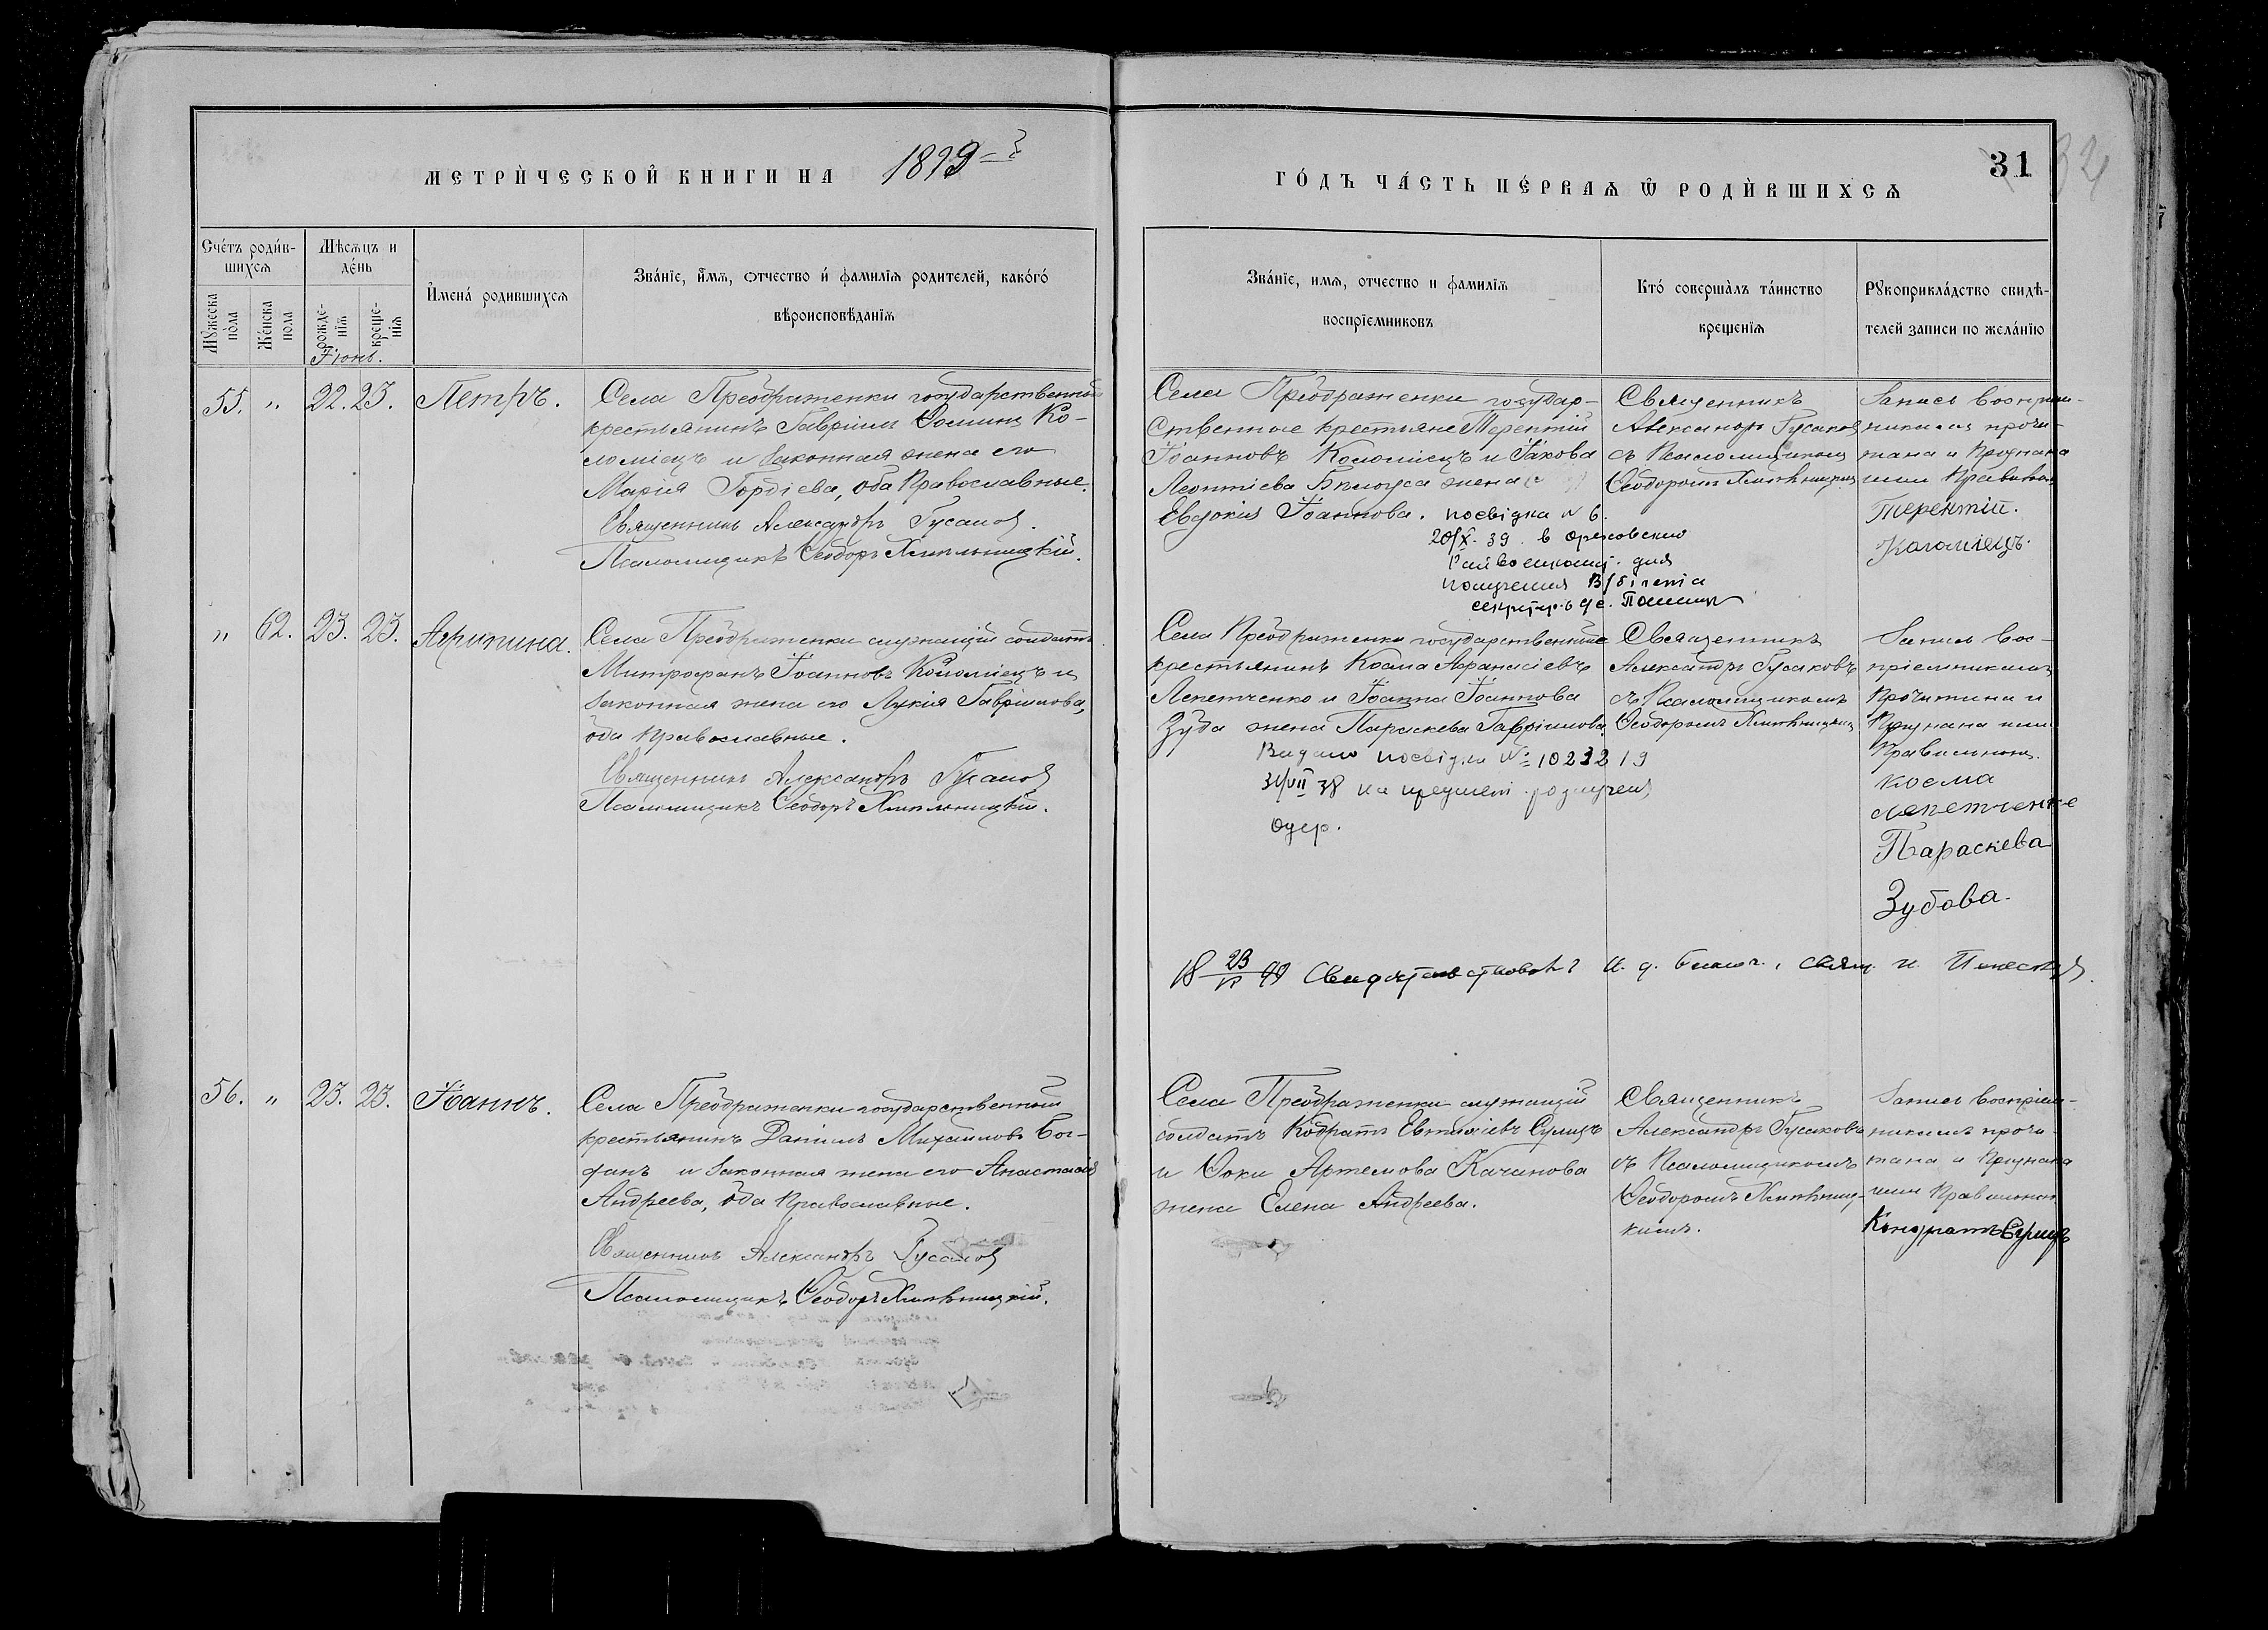 МЕТРИ́ЧЕСКОЙ КНИГИ НА 1899 г
ГО́ДЪ ЧА́СТЬ ПЕ́РВАЯ Ѿ РОДИ́ВШИХСЯ
31
32
Сче́тъ роди́в-
шихся
Мѣсяцъ и
де́нь
Мꙋжеска
по́ла
Же́нска
пола
рожде-
нія
креще-
нія
Іюнь.
И҆мена́ родившихся
Зва́ніе, и҆́мя, ѻтчество и҆ фамилія родителей, како́го́
вѣроисповѣданія
Зва́ніе, имя, отчество и фамилія
воспріемниковъ
Кто́ соверша́лъ та́инство
крещенія
Рꙋкоприкла́дство свидѣ-
телей записи по жела́нію
55. " 22. 23. Петръ.
Села Преображенки государственный
крестьянинъ Гавріилъ Ко-
ломіецъ и законная жена его
Марія Гордіева, оба Православные.
Священникъ Александръ Гусаков
Псаломщикъ Ѳеодоръ Хмѣльницкій.
Села Преображенки государ-
ственные крестьяне Терентій
Іоанновъ Коломіецъ и Іакова
Леонтіева Бѣлоуса жена
Евдокія Іоаннова. посвідка № 6.
20/X. 39. в Ореховский
для
получения
секретарь
Священникъ
Александръ Гусаковъ
съ Псаломщикомъ
Ѳеодоромъ Хмѣльницкимъ
Запись воспріем-
никамъ прочи-
тана и Признана
ими Правильн.
Терентій.
Коломіецъ.
" 62. 23. 23. Агрипина.
Села Преображенки служащій солдатъ
Митрофанъ Іоанновъ Коломіецъ и
законная жена его Лукія Гавріилова,
оба Православные.
Священникъ Александръ Гусаков
Псаломщикъ Ѳеодоръ Хмѣльницкій.
Села Преображенки государственные
крестьянинъ Косма Афанасіевъ
Лепетченко и Іоанна Іоаннова
Зуба жена Параскева Гавріилова
Видано посвідка № 1023219
31/VII 38 на предмет
одер.
Священникъ
Александръ Гусаковъ
съ Псаломщикомъ
Ѳеодоромъ Хмѣльницким
Запись вос-
пріемникамъ
Прочитана и
Признана ими
Правильною.
Косма
Лепетченко
Параскева
Зубова.
18 23/VI 99 Свидетельствовалъ и. д. Благоч., свящ. И.
56. " 23. 23. Іоаннъ.
Села Преображенки государственный
крестьянинъ Даніилъ Михаиловъ Бог-
данъ и законная жена его Анастасія
Андреева, оба Православные.
Священникъ Александръ Гусаков
Псаломщикъ Ѳеодоръ Хмѣльницкій.
Села Преображенки служащій
солдатъ Кодратъ Евтихіевъ Сулицъ
и Фоки Артемова Качанова
жена Елена Андреева.
Священникъ
Александръ Гусаковъ
съ Псаломщикомъ
Ѳеодоромъ Хмѣльниц-
кимъ.
Запись воспріем-
никамъ прочи-
тана и Признана
ими Правильною
Кондратъ Сулицъ